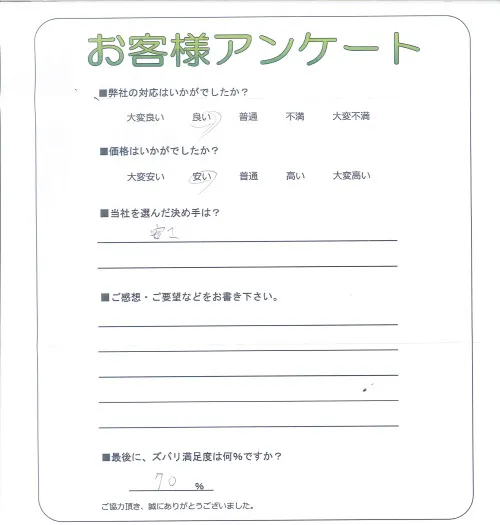 お客様アンケート
■弊社の対応はいかがでしたか？
大変良い 良い 普通 不満 大変不満
■価格はいかがでしたか？
大変安い 安い 普通 高い 大変高い
■当社を選んだ決め手は？
■ご感想・ご要望などをお書き下さい。
■最後に、ズバリ満足度は何％ですか？
70 ％
ご協力頂き、誠にありがとうございました。